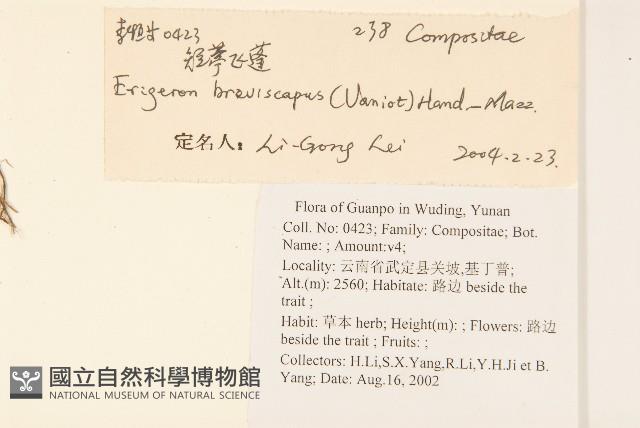 李恒 0423 238 Compositae
短葶飞蓬
Erigeron breviscapus (Vaniot) Hand-Mazz.
定名人: Li-Gong Lei 2004.2.23.
Flora of Guanpo in Wuding, Yunan
Coll. No: 0423; Family: Compositae; Bot.
Name: ; Amount:v4;
Locality: 云南省武定县关坡,基丁普;
Alt.(m): 2560; Habitate: 路边 beside the
trait ;
Habit: 草本 herb; Height(m): ; Flowers: 路边
beside the trait ; Fruits: ;
Collectors: H.Li,S.X.Yang,R.Li,Y.H.Ji et B.
Yang; Date: Aug.16, 2002
國立自然科學博物館
NATIONAL MUSEUM OF NATURAL SCIENCE